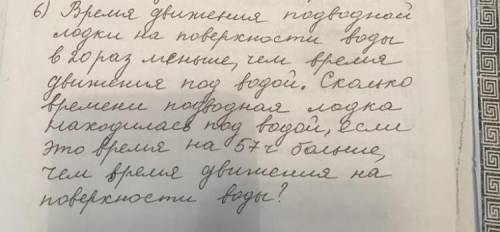 6) Время движения подводной
лодки на поверхности воды
в 20 раз меньше, чем время
движения под водой. Сколько
времени подводная лодка
находилась под водой, если
это время на 57 ч больше,
чем время движения на
поверхности воды?